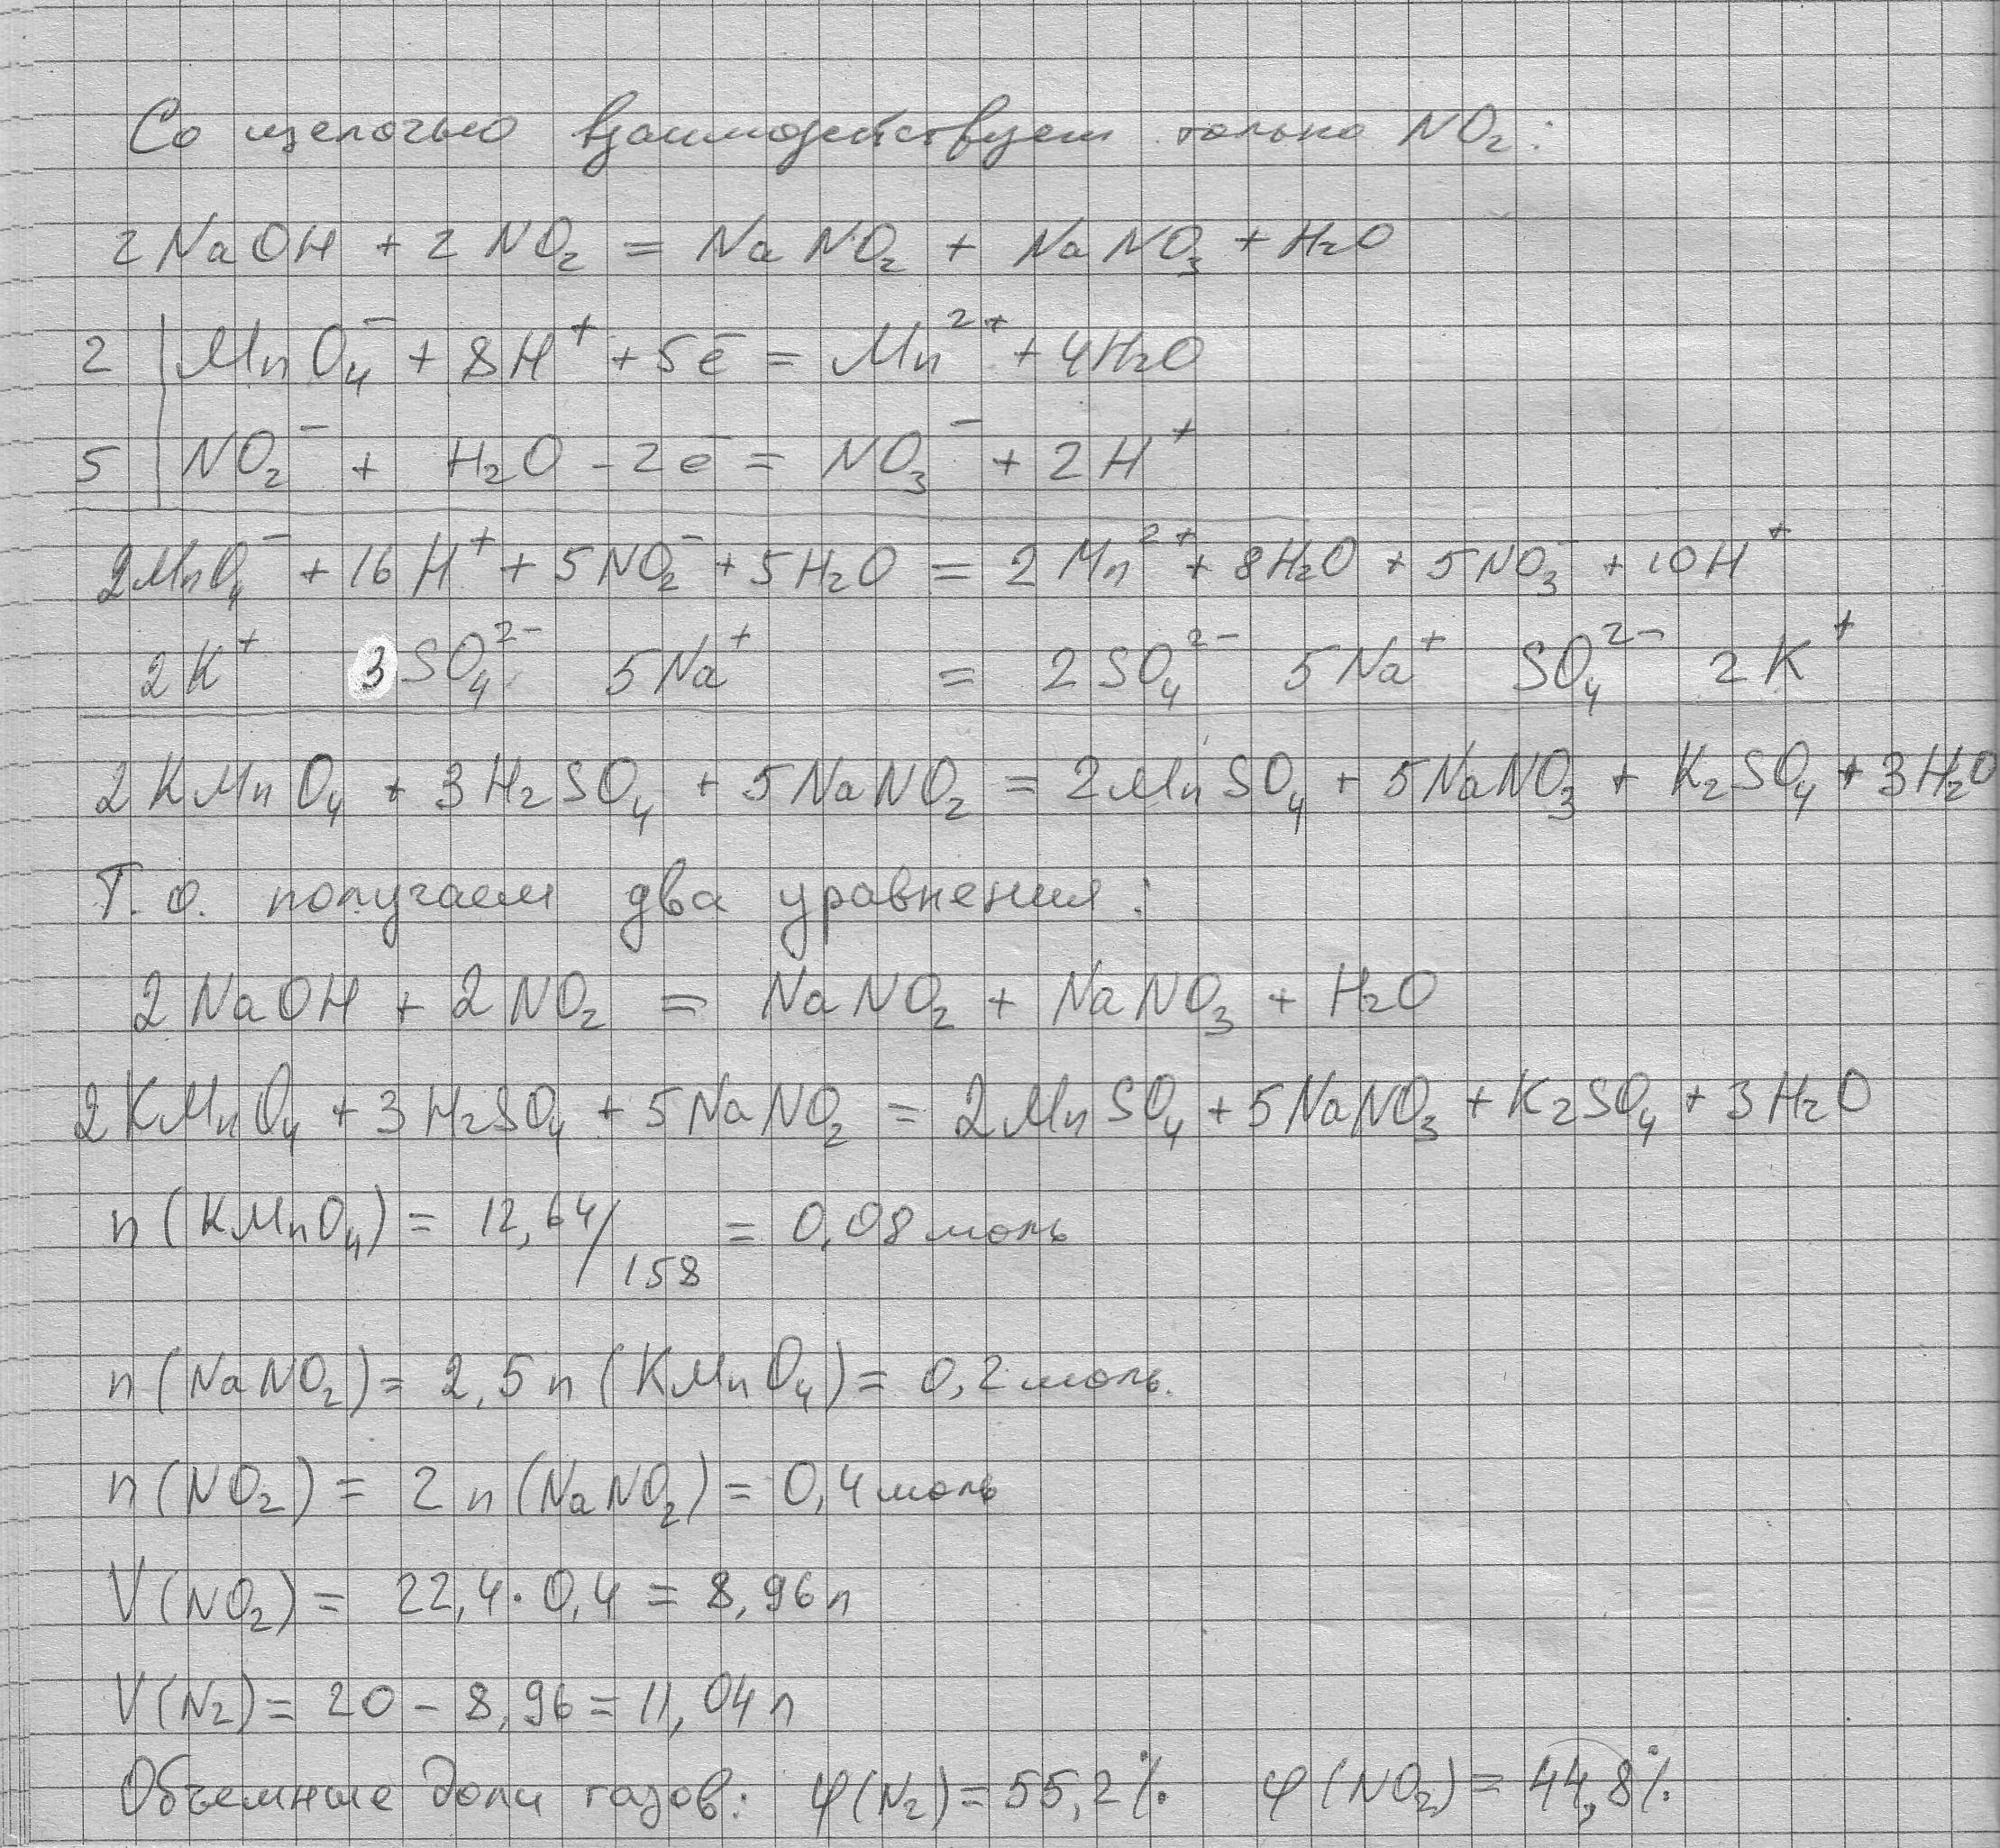 Со щелочью взаимодействует только NO₂:
2NaOH + 2NO₂ = NaNO₂ + NaNO₃ + H₂O
2 | MnO₄⁻ + 8H⁺ + 5e⁻ = Mn²⁺ + 4H₂O
5 | NO₂⁻ + H₂O - 2e⁻ = NO₃⁻ + 2H⁺
2MnO₄⁻ + 16H⁺ + 5NO₂⁻ + 5H₂O = 2Mn²⁺ + 8H₂O + 5NO₃⁻ + 10H⁺
2K⁺ 3SO₄²⁻ 5Na⁺ = 2SO₄²⁻ 5Na⁺ SO₄²⁻ 2K⁺
2KMnO₄ + 3H₂SO₄ + 5NaNO₂ = 2MnSO₄ + 5NaNO₃ + K₂SO₄ + 3H₂O
Т.о. получаем два уравнения:
2NaOH + 2NO₂ = NaNO₂ + NaNO₃ + H₂O
2KMnO₄ + 3H₂SO₄ + 5NaNO₂ = 2MnSO₄ + 5NaNO₃ + K₂SO₄ + 3H₂O
n(KMnO₄) = 12,64/158 = 0,08 моль
n(NaNO₂) = 2,5n(KMnO₄) = 0,2 моль.
n(NO₂) = 2n(NaNO₂) = 0,4 моль
V(NO₂) = 22,4·0,4 = 8,96л
V(N₂) = 20 - 8,96 = 11,04л
Объемные доли газов: φ(N₂) = 55,2% φ(NO₂) = 44,8%